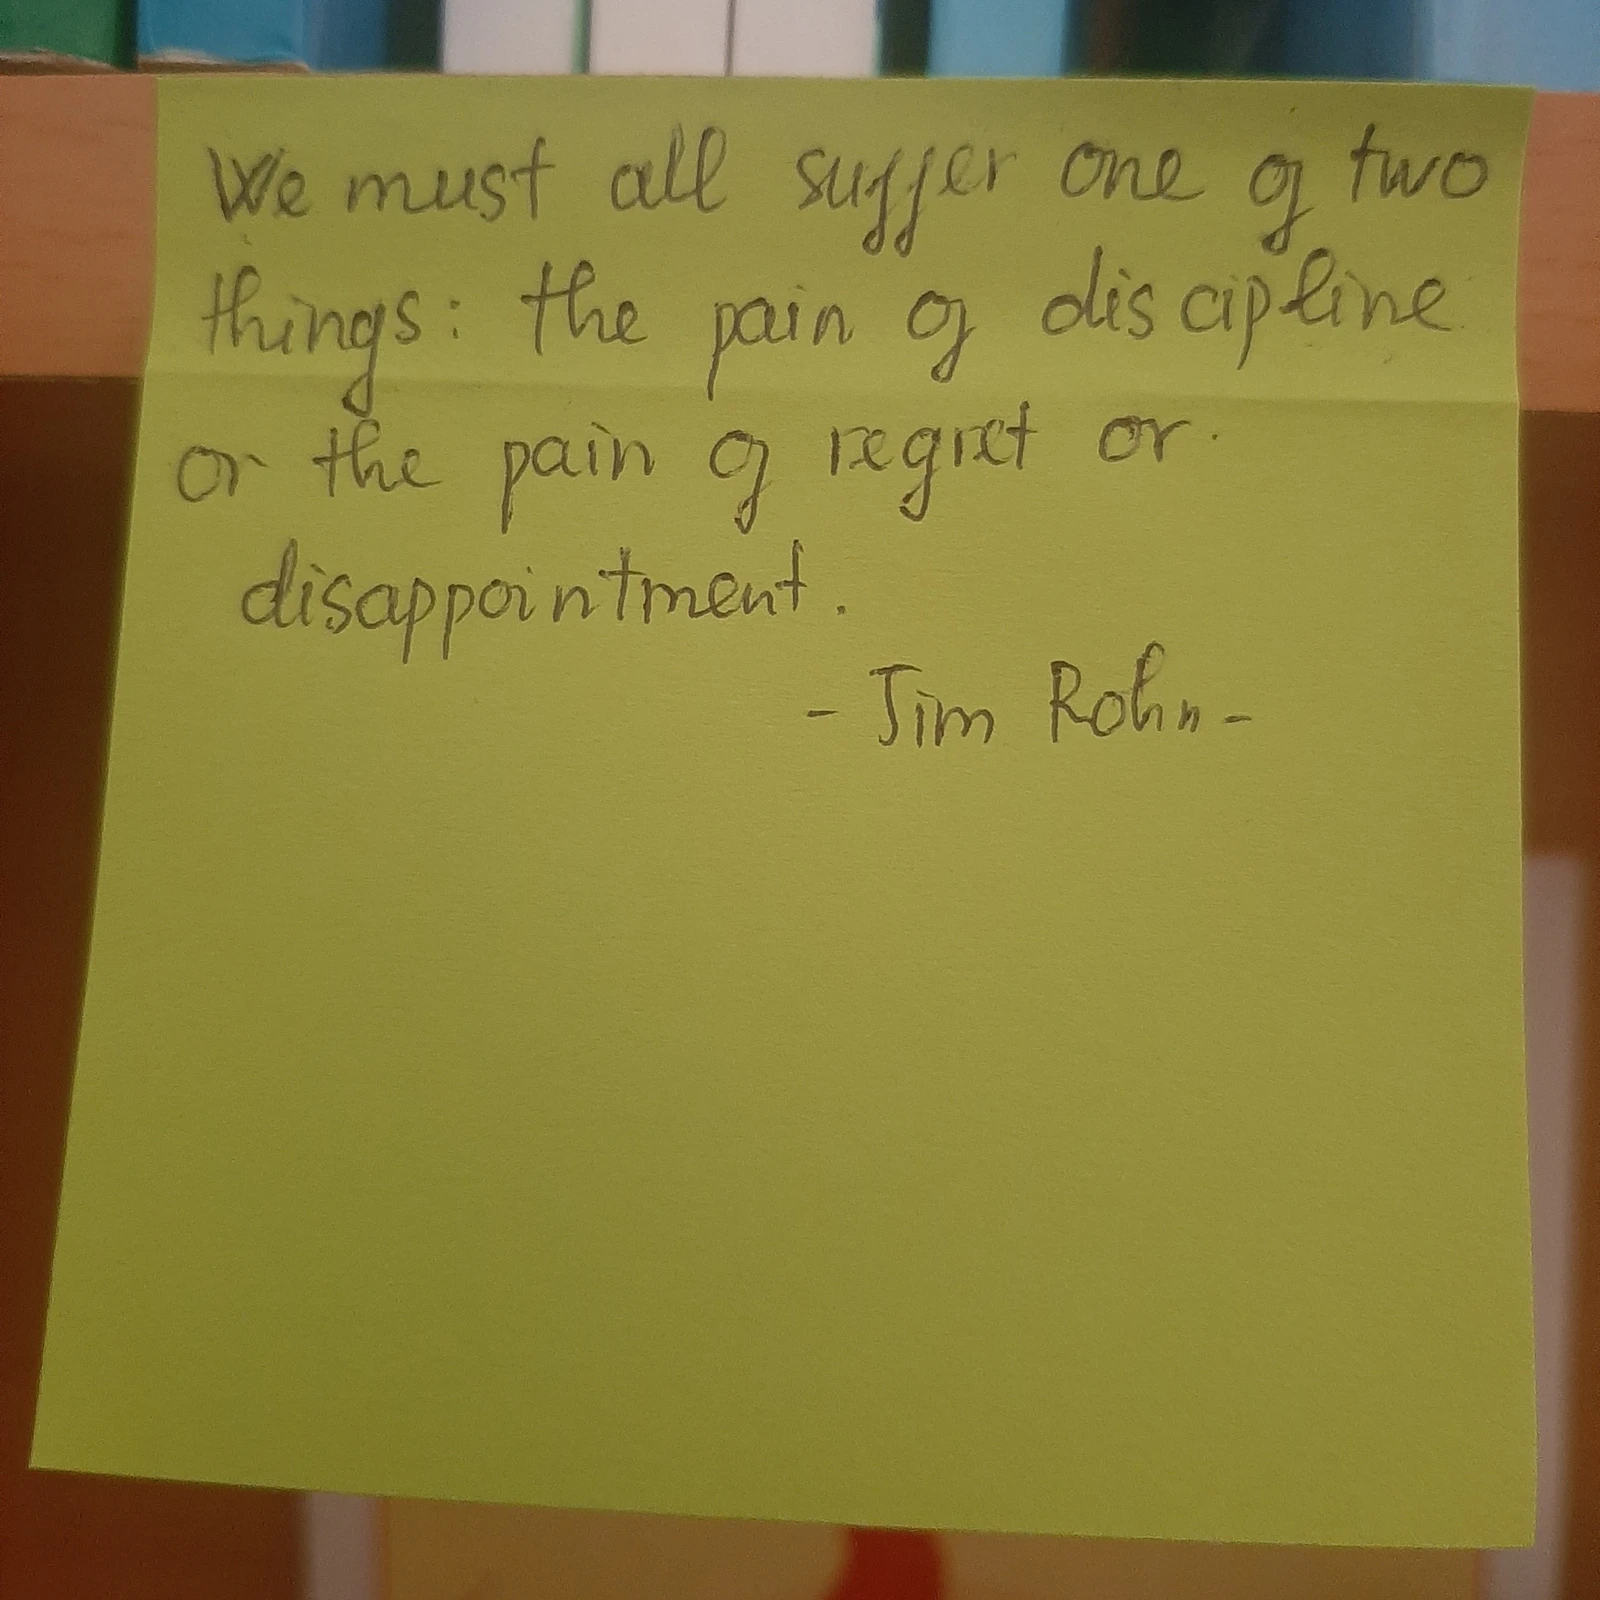 We must all suffer one of two
things: the pain of discipline
or the pain of regret or
disappointment.
- Jim Rohn -